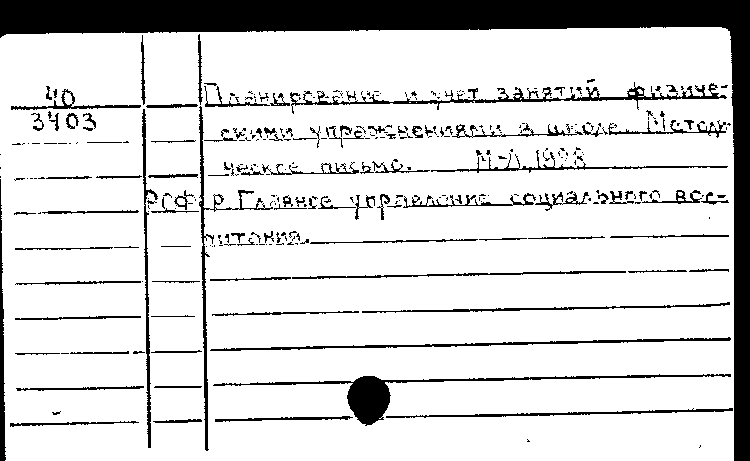 40
3403
Планирование и учет занятий физиче-
скими упражнениями в школе. Методи-
ческое письмо. М.-Л., 1928
РСФСР. Главное управление социального вос-
питания.